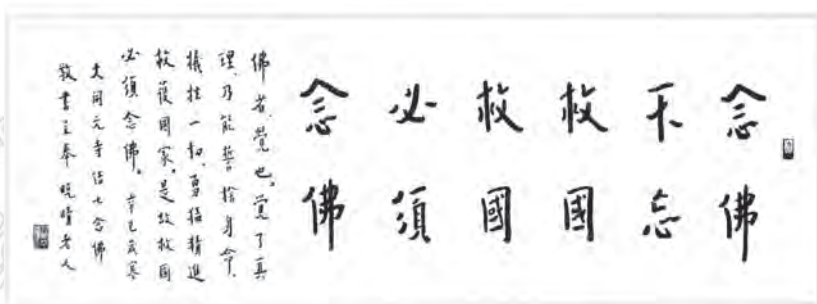 念佛
不忘
救國
救國
必須
念佛
佛者、覺也。覺了真
理、乃能誓捨身命、
犧牲一切、勇猛精進
救護國家。是故救國
必須念佛。辛巳歲寒
大開元寺結七念佛
敬書呈奉晚晴老人